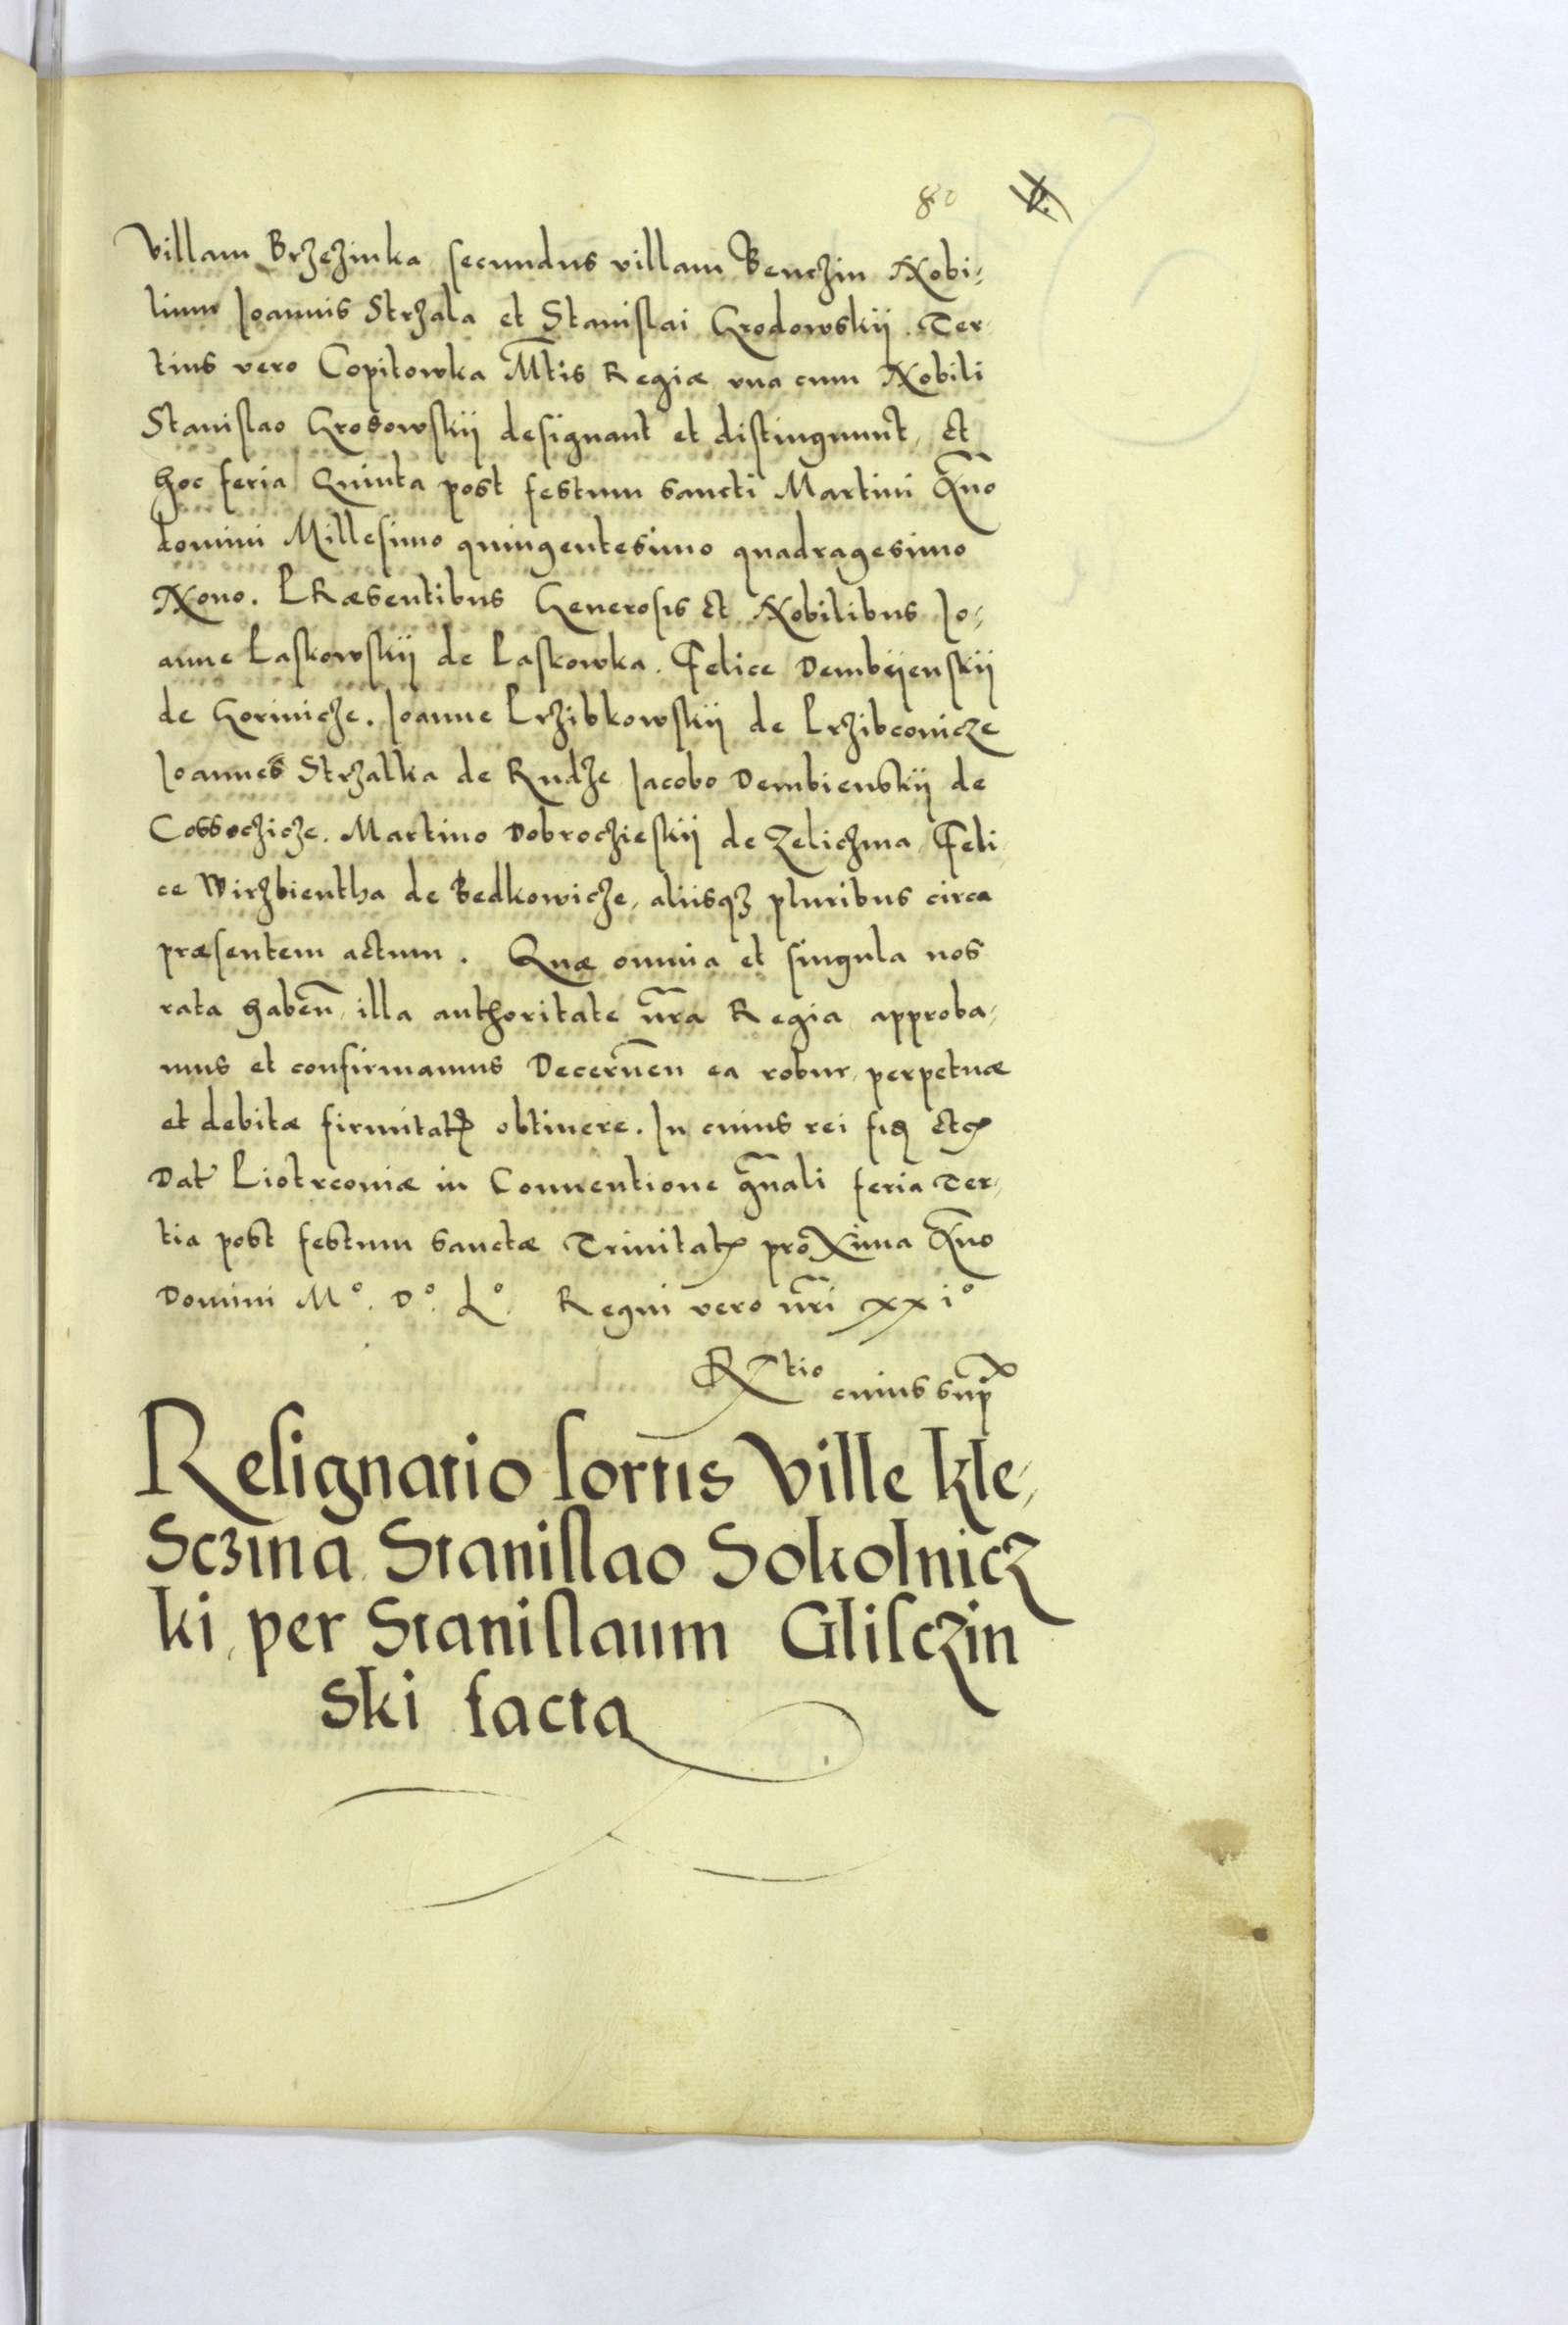 80
Villam Brzezinka secundus villam Benczin Nobi-
lium Joannis Strzala et Stanislai Grodowskij. Ter
tius vero Copitowka M̅tis Regiæ vna cum Nobili
Stanislao Grosowskij designant et distingunnt, Et
hoc feria Quinta post festum sancti Martini An̅o
domini Millesimo quingentesimo quadragesimo
Nono. PRæsentibus Generosis Et Nobilibus Jo-
anne Paskowskij de Paskowka. Felice Dembijenskij
de Gorinicze. Joanne Przibkowskij de Przibconicze
Joannes Strzalka de Rudze Jacobo Dembienskij de
Cossoczicze. Martino Dobroczieskij de Zeliczma Feli
ce Wirzbientha de Bedkowicze, aliisqз pluribus circa
præsentem actum. Quæ omnia et singula nos
rata haben̅, illa authoritate nr̅a Regia approba-
mus et confirmamus Decernen̅ ea robur perpetuæ
et debitæ firmitatꝭ obtinere. In cuius rei fiꝗ Etcꝭ
Dat Piotrconiæ in Conuentione gn̅ali feria Ter-
tia post festum sanctæ Trinitatꝭ proxima An̅o
Domini Mº. Dº. Lº. Regni vero nr̅i xxiº
Rtio cuius sup
Resignatio sortis Ville kle-
Sczina Stanislao Sokolnicz
ki, per Stanislaum Glisczin
Ski facta